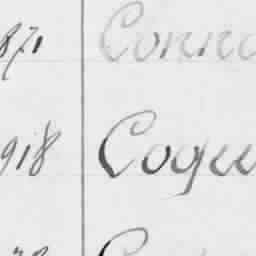 871 Conno
918 Coqu